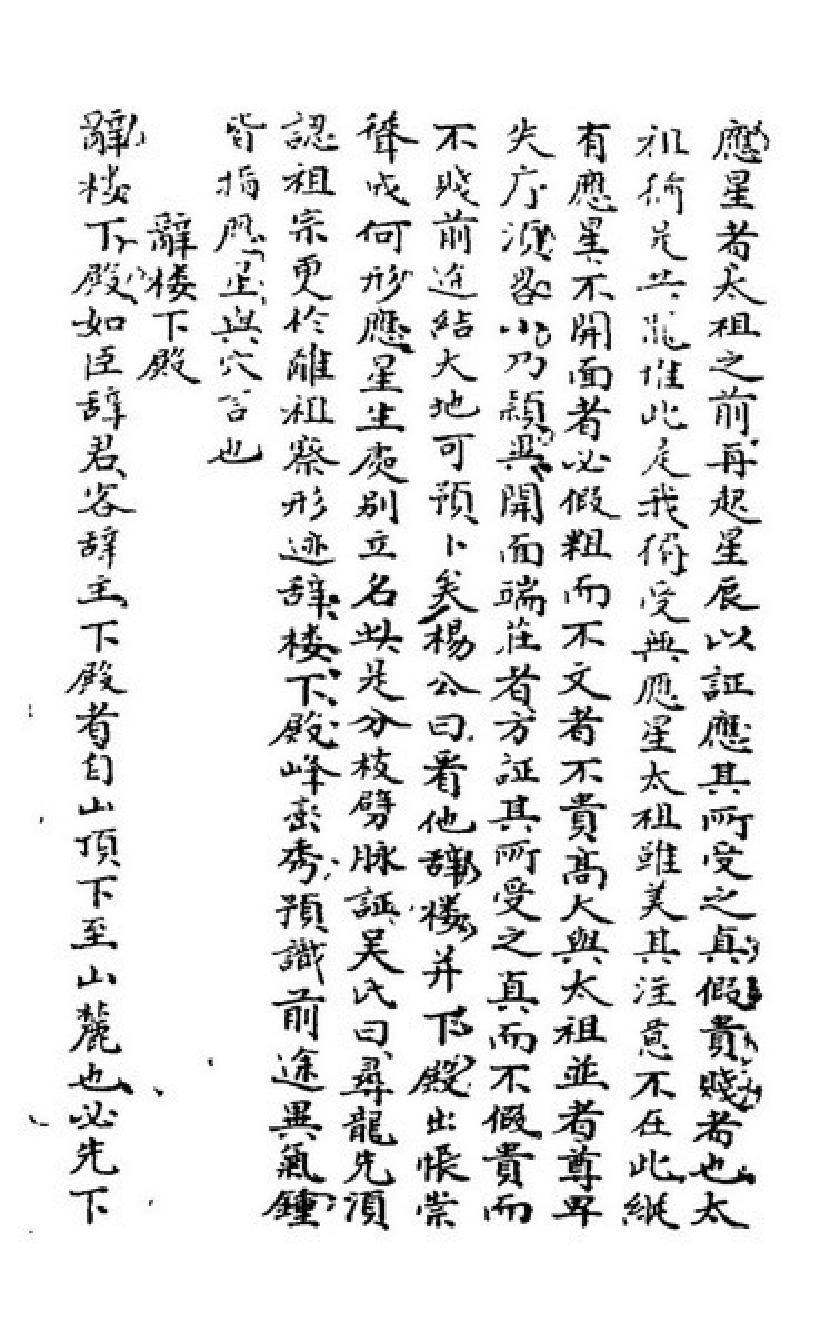 應星者太祖之前再起星辰以証應其所受之真假貴賤者也太
祖猶是共龍惟此是我獨受無應星太祖雖美其注意不在此縱
有應星不開面者必假粗而不文者不貴高大與太祖並者尊卑
失序須略小乃穎異開面端莊者方証其所受之真而不假貴而
不賤前途結大地可預卜矣楊公曰看他辭楼并下殿出帳崇
聳成何形應星生處別立名此是分枝劈脉証吴氏曰尋龍先須
認祖宗更於離祖察形迹辞楼下殿峰巒秀預識前途異氣鍾
皆指應星與穴言也
辭楼下殿
辭楼下殿如臣辞君客辞主下殿者自山頂下至山麓也必先下